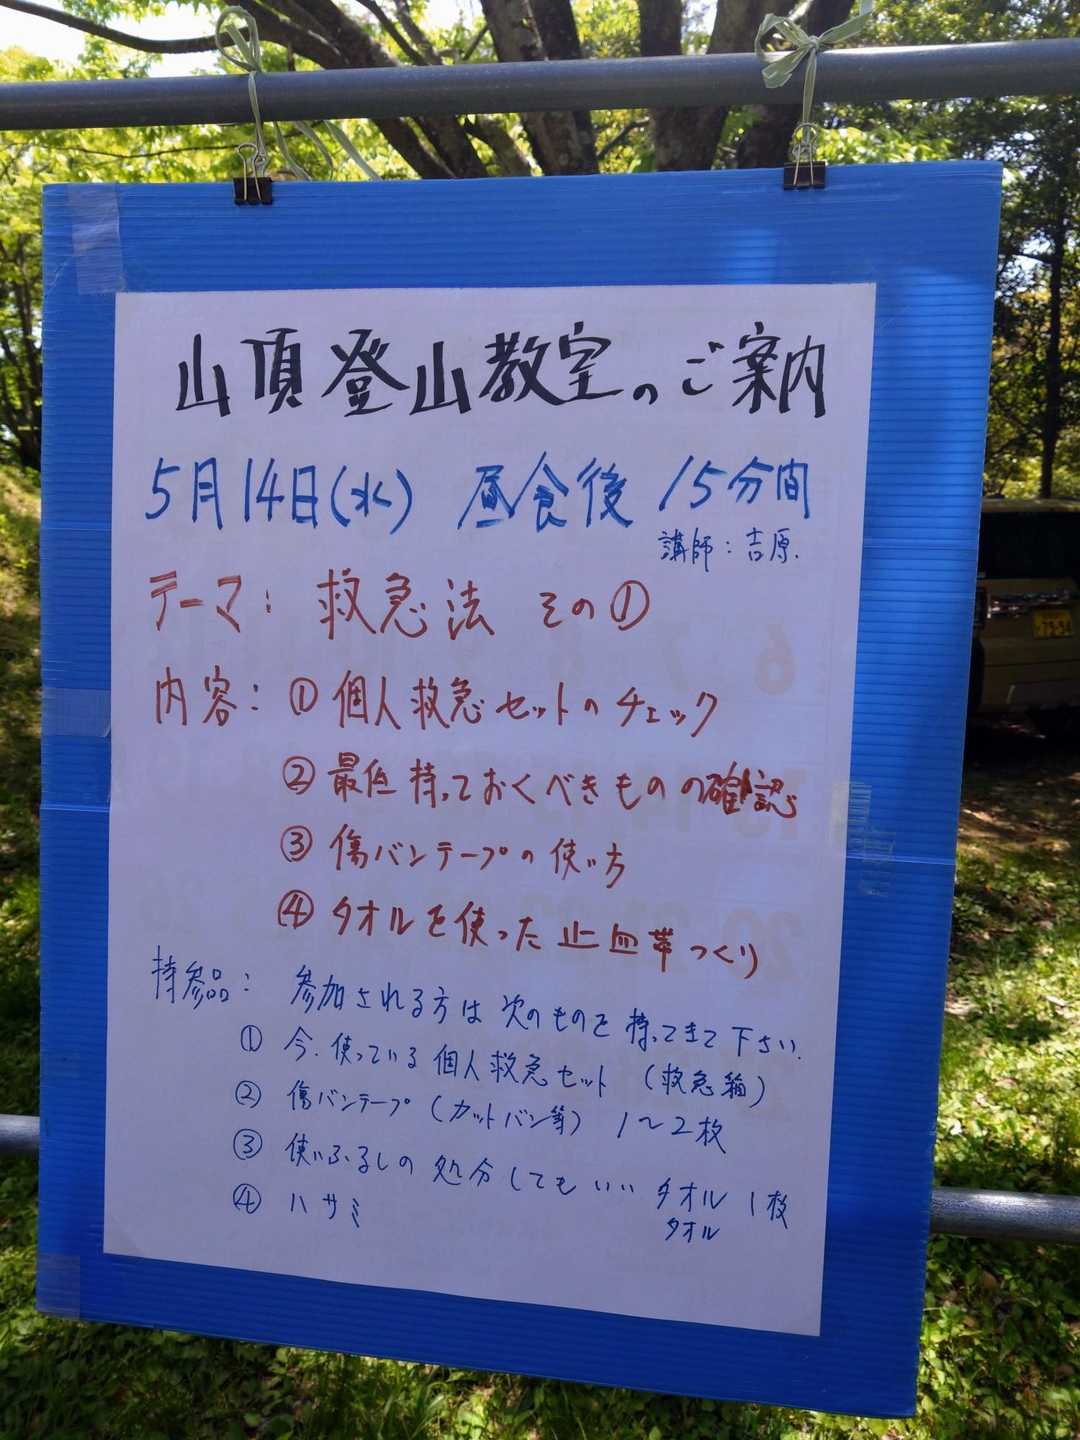 山頂登山教室のご案内
5月14日(水) 昼食後 15分間
講師：吉原
テーマ：救急法 その①
内容：①個人救急セットのチェック
②最低持っておくべきものの確認
③傷バンテープの使い方
④タオルを使った止血帯つくり
持参品：参加される方は次のものを持ってきて下さい.
①今、使っている個人救急セット（救急箱）
②傷バンテープ（カットバン等）1～2枚
③使いふるしの処分してもいい タオル 1枚
タオル
④ハサミ
6 7
13 14 15
20 21 22
26